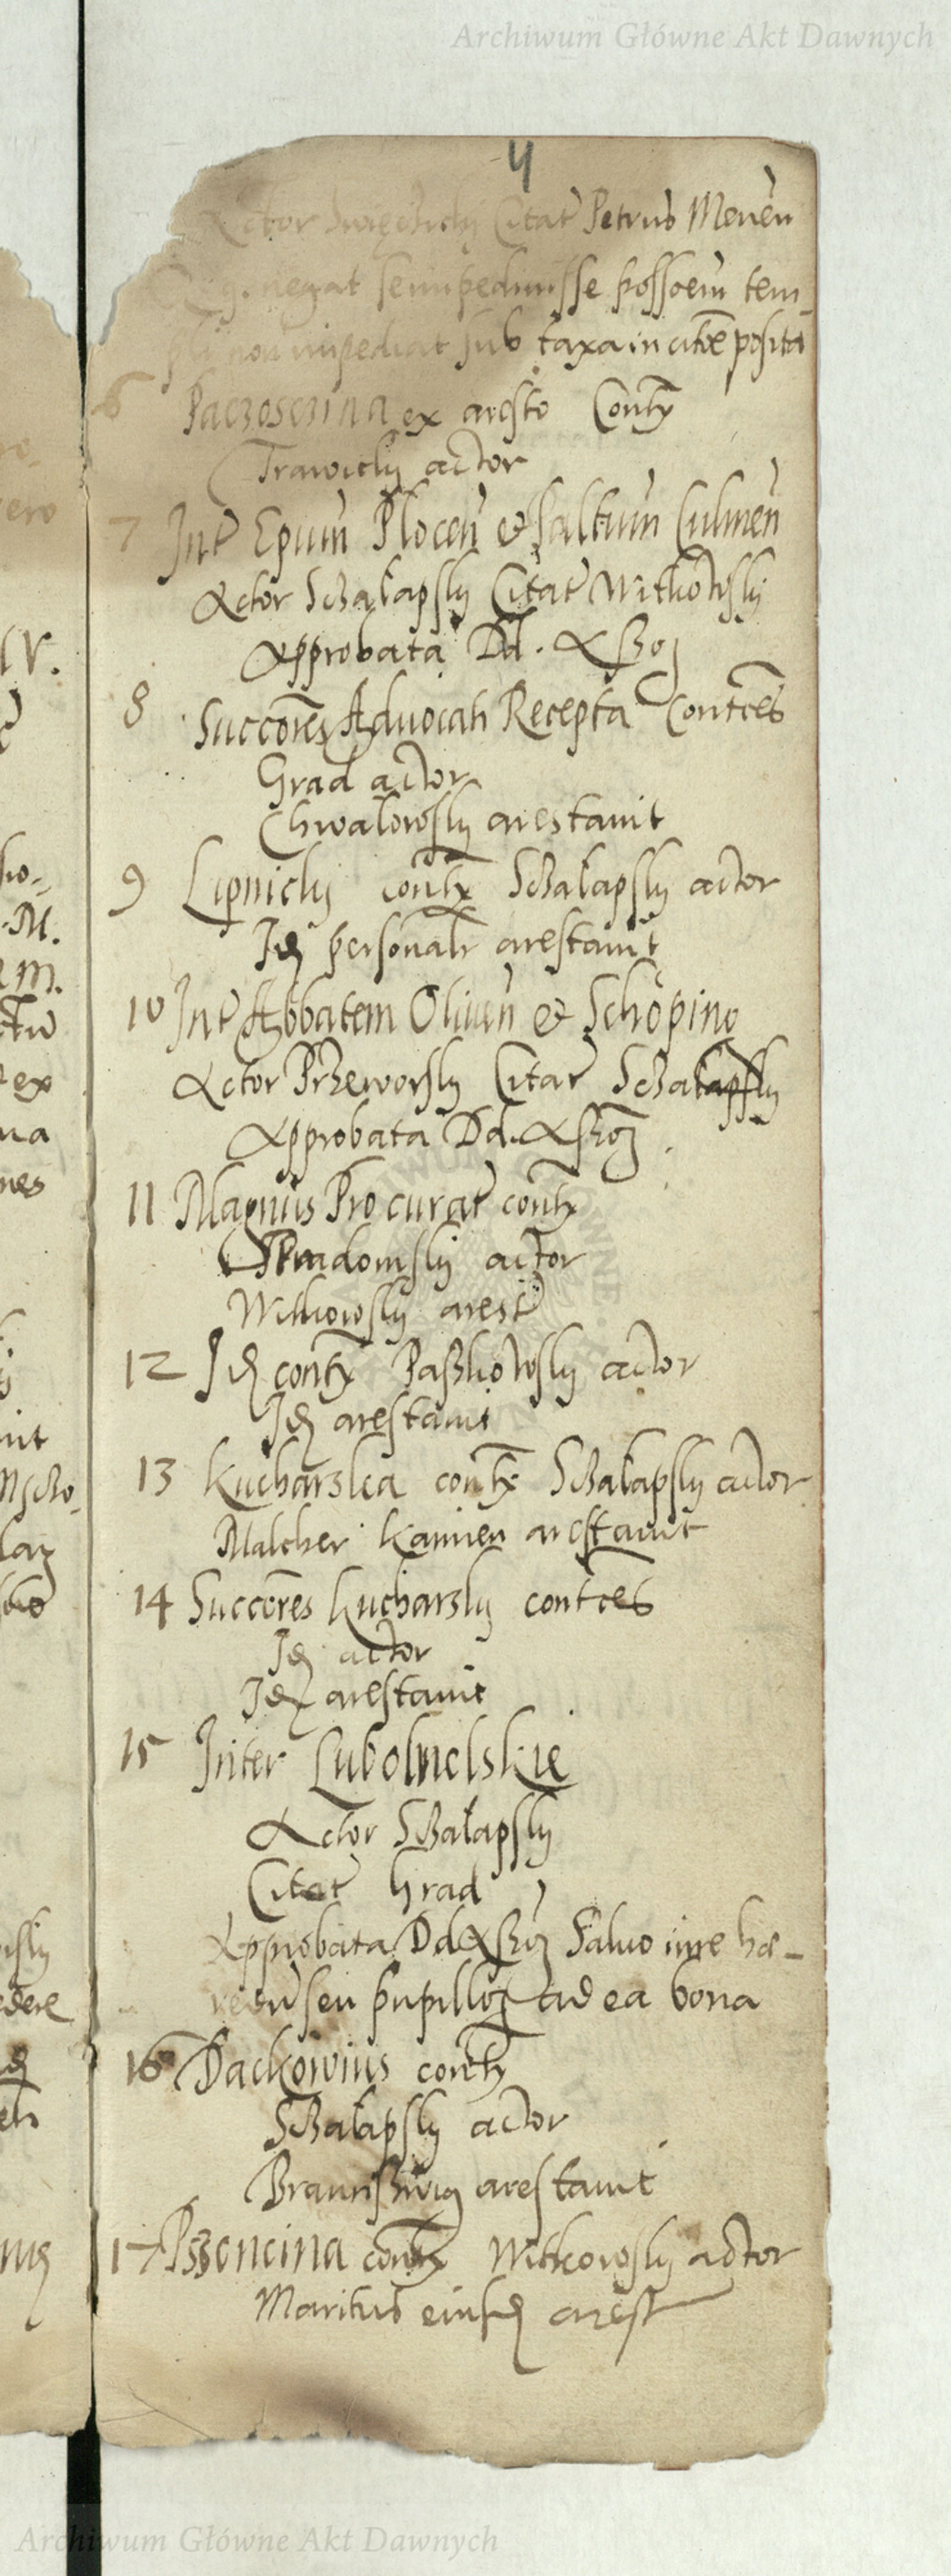 Archiwum Główne Akt Dawnych
4
Actor Citat Petrus Meuen
negat se impedivisse possoem tem
non impediat sub taxa in citoe posita
6 Paczoscina ex aresto Contx
Trawicky actor
7 Int Epum Plocen et Saltum Culmen
Actor Szałapsky Citat Witkowsky
Approbata Dd.
8 Succores Advocati Recepta Contces
Grad actor
Chwalowsky arestavit
9 Lipnicky contx Szałapsky actor
Id personalr arestavit
10 Int Abbatem Oliuen et Schöping
Actor Przeworsky Citat Szałapsky
Approbata Dd.
11 Magnus Procurat contx
Radomsky actor
Witkowsky arest
12 Id contx Paszkowsky actor
Id arestavit
13 Kucharska contx Szałapsky actor
Malcher Kamien arestavit
14 Succores Kucharsky contces
Id actor
Id arestavit
15 Inter
Actor Szałapsky
Citat hrad
Approbata Dd salvo iure hæ-
redu seu pupillor ad ea bona
16 Dackowius contx
Szałapsky actor
Braunszwig arestavit
17 Pszoncina contx Witkowsky actor
Maritus eiusd arest
Archiwum Główne Akt Dawnych